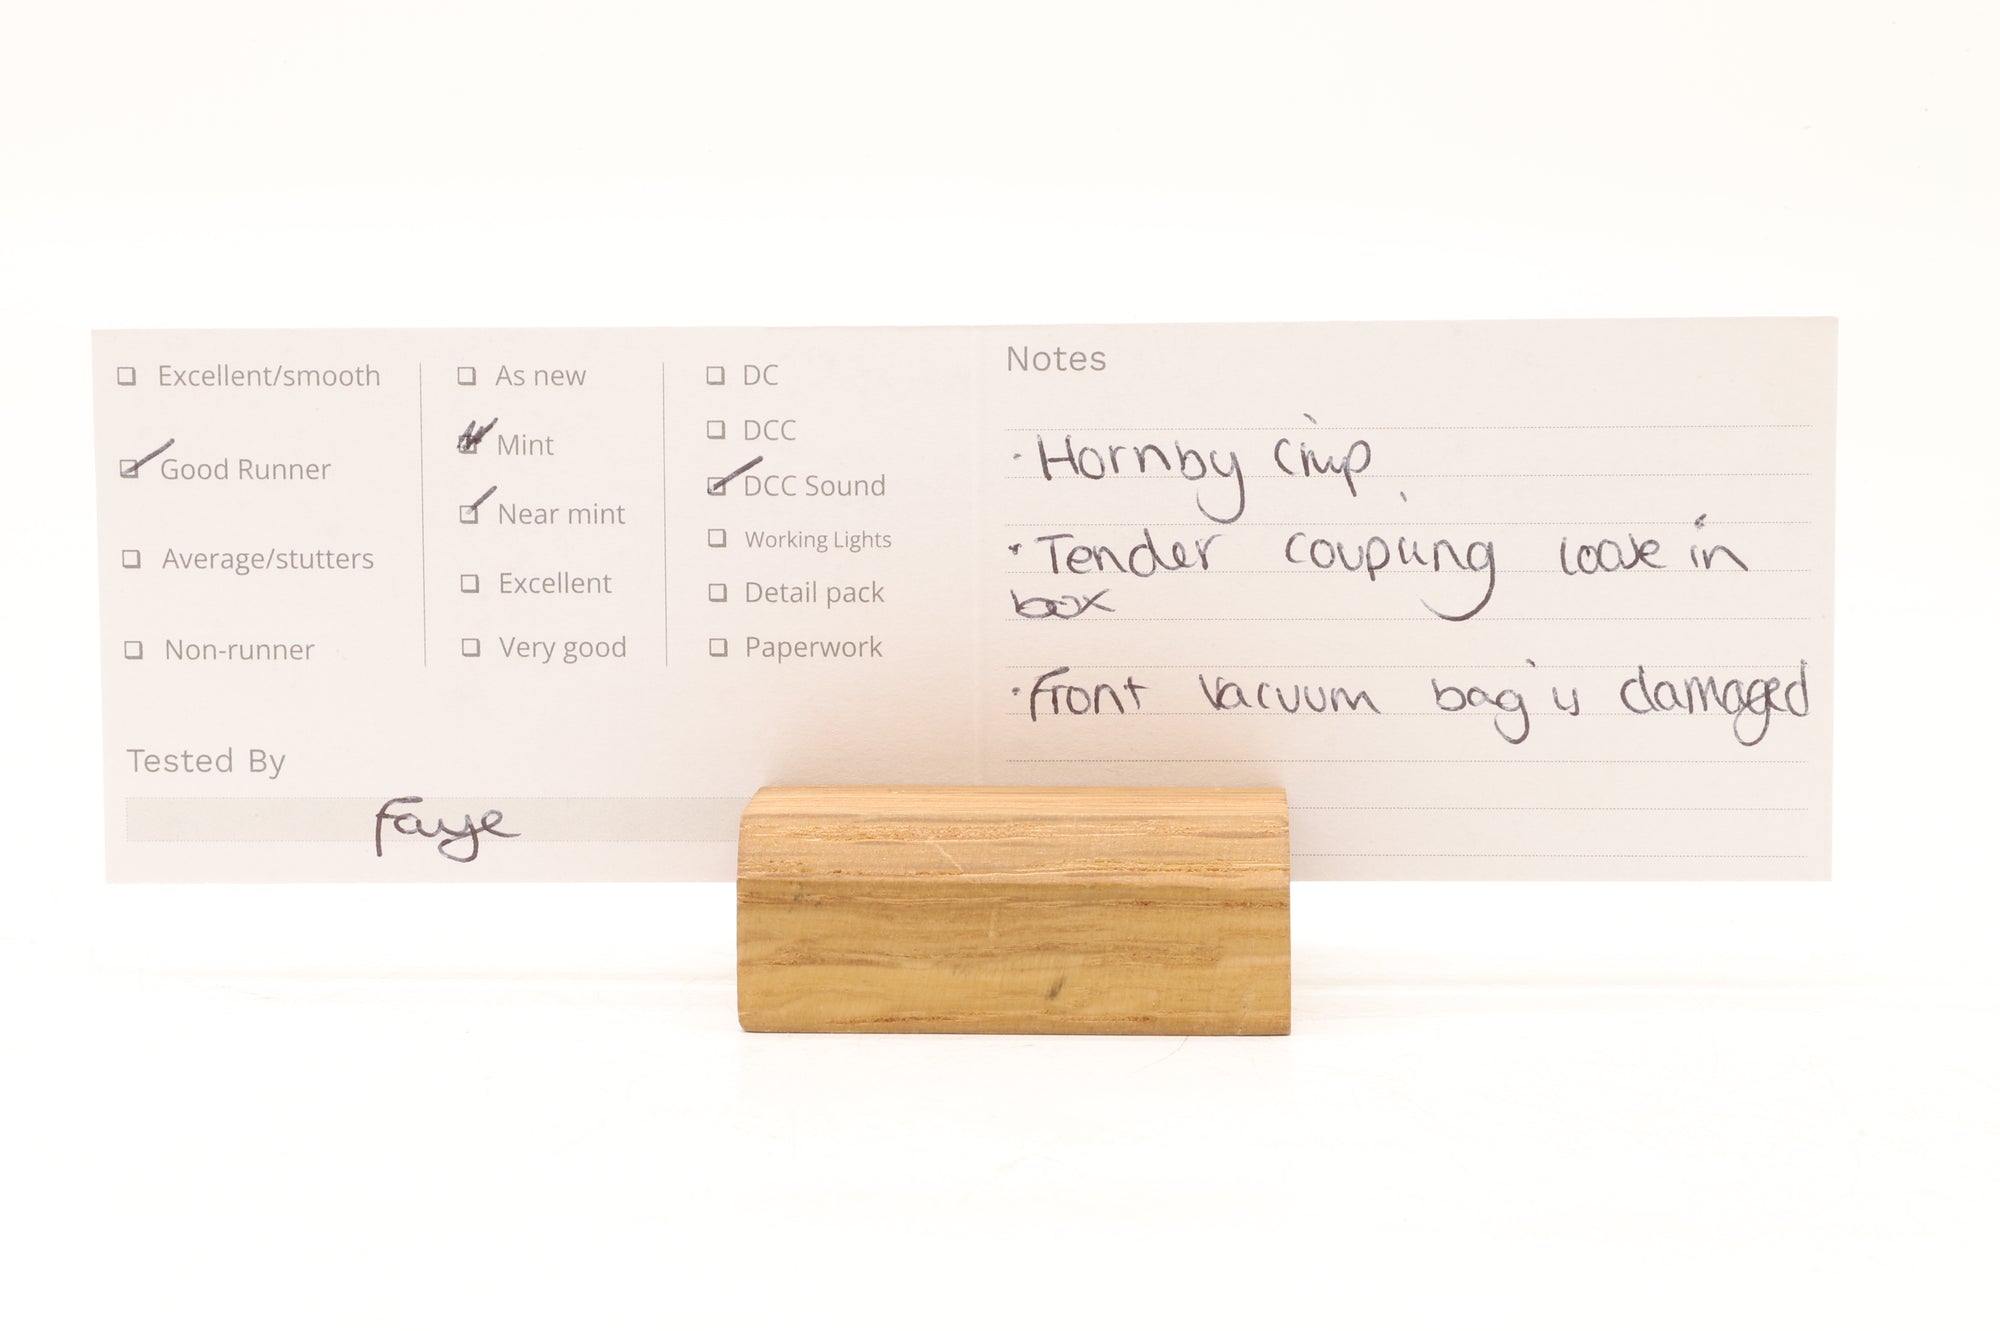 Excellent/smooth
Good Runner
Average/stutters
Non-runner
As new
Mint
Near mint
Excellent
Very good
DC
DCC
DCC Sound
Working Lights
Detail pack
Paperwork
Tested By
Faye
Notes
· Hornby chip
· Tender coupling loose in
box
· Front vacuum bag is damaged